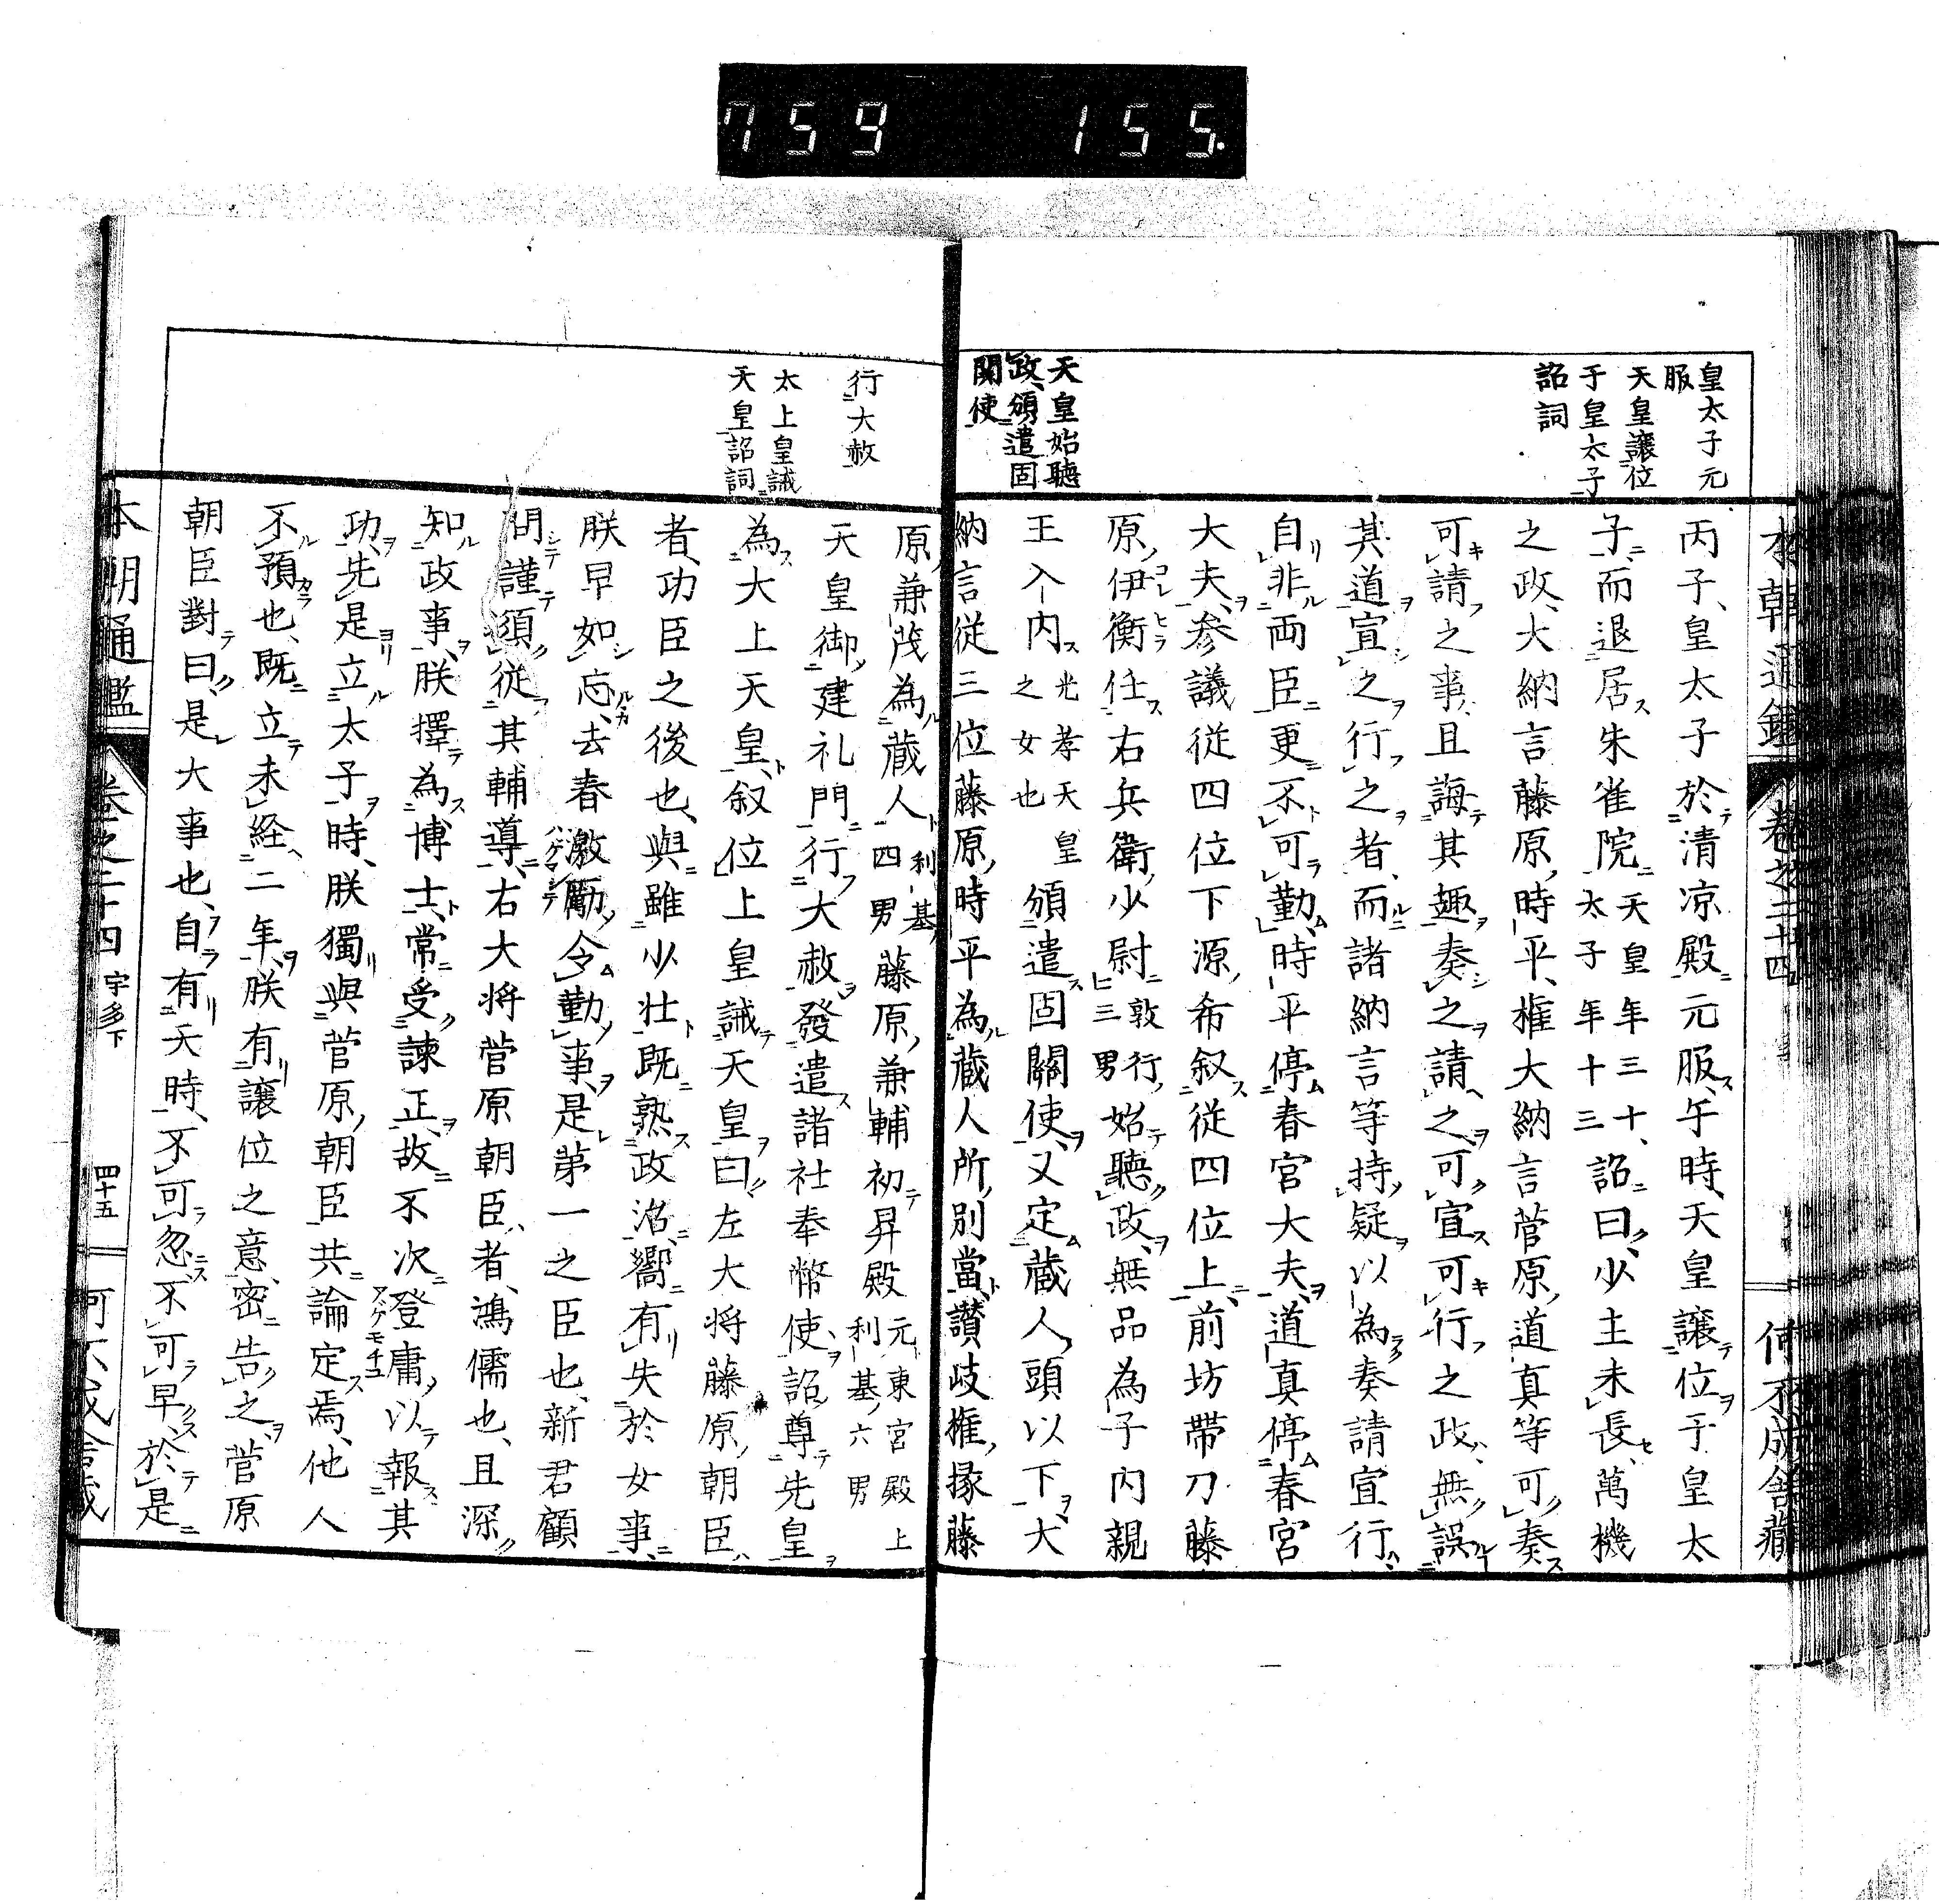 759 155.
皇太子元
服
天皇讓位
于皇太子
詔詞
天皇始聽
政、頒遣固
關使
本朝通鑑 卷之二十四 何不成舍藏
丙子、皇太子於清凉殿元服、午時、天皇讓位于皇太
子、而退居朱雀院、天皇年三十、太子年十三 詔曰、少主未長、萬機
之政、大納言藤原時平、權大納言菅原道真等可奏
可請之事、且誨其趣奏之請之、可宣可行之政、無誤
其道宣之行之者、而諸納言等持疑以為奏請宣行、
自非兩臣更不可勤、時平停春宮大夫、道真停春宮
大夫、参議従四位下源希叙従四位上、前坊帶刀藤
原伊衡任右兵衛少尉、敦行三男 始聽政、無品為子内親
王入内 光孝天皇之女也 頒遣固關使、又定蔵人頭以下、大
納言従三位藤原時平為蔵人所別當、讃岐權掾藤
行大赦
太上皇誡
天皇詔詞
原兼茂為蔵人 利基四男 藤原兼輔初昇殿 元東宮殿上利基六男
天皇御建礼門行大赦、發遣諸社奉幣使、詔尊先皇
為大上天皇、叙位上皇誡天皇曰、左大将藤原朝臣
者、功臣之後也、與雖少壮既熟政、洽嚮有失於女事、
朕早如忘、去春激勵令勤事、是第一之臣也、新君顧
問謹須従其輔導、右大将菅原朝臣者、鴻儒也、且深
知政事、朕擇為博士、常受諫正、故不次登庸、以報其
功、先是立太子時、朕獨與菅原朝臣共論定焉、他人
不預也、既立未経二年、朕有讓位之意、密告之、菅原
朝臣對曰、是大事也、自有天時、不可忽不可早、於是
本朝通鑑 卷之二十四 宇多下 四十五 何不成舍藏